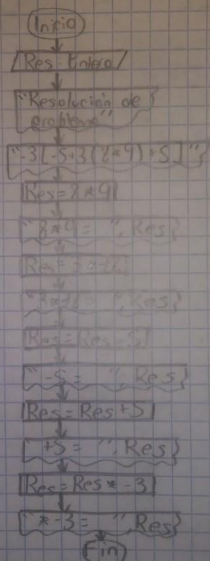 Inicio
Res = Entero
"Resolución de
problema"
"-3[-5+3(8*9)+5]"
Res=8*9
"8*9= ", Res
"-5= ", Res
Res=Res+5
"+5= ", Res
Res=Res*-3
"*-3= ", Res
Fin